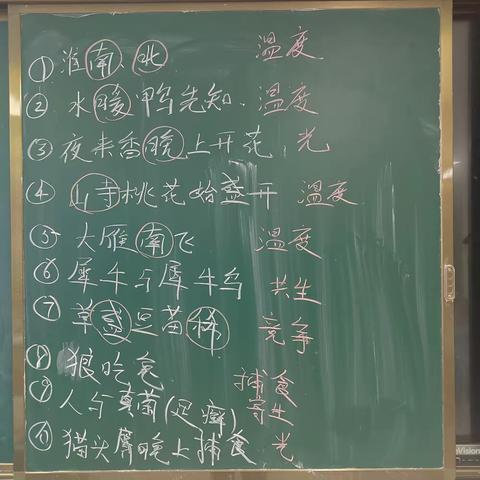 ①淮南、北 温度
② 水暖鸭先知、温度
③ 夜来香晚上开花, 光
④ 山寺桃花始盛开 温度
⑤ 大雁南飞 温度
⑥ 犀牛与犀牛鸟 共生
⑦ 草盛豆苗稀 竞争
⑧ 狼吃兔 捕食
⑨ 人与真菌(足癣) 寄生
⑩ 猫头鹰晚上捕食 光